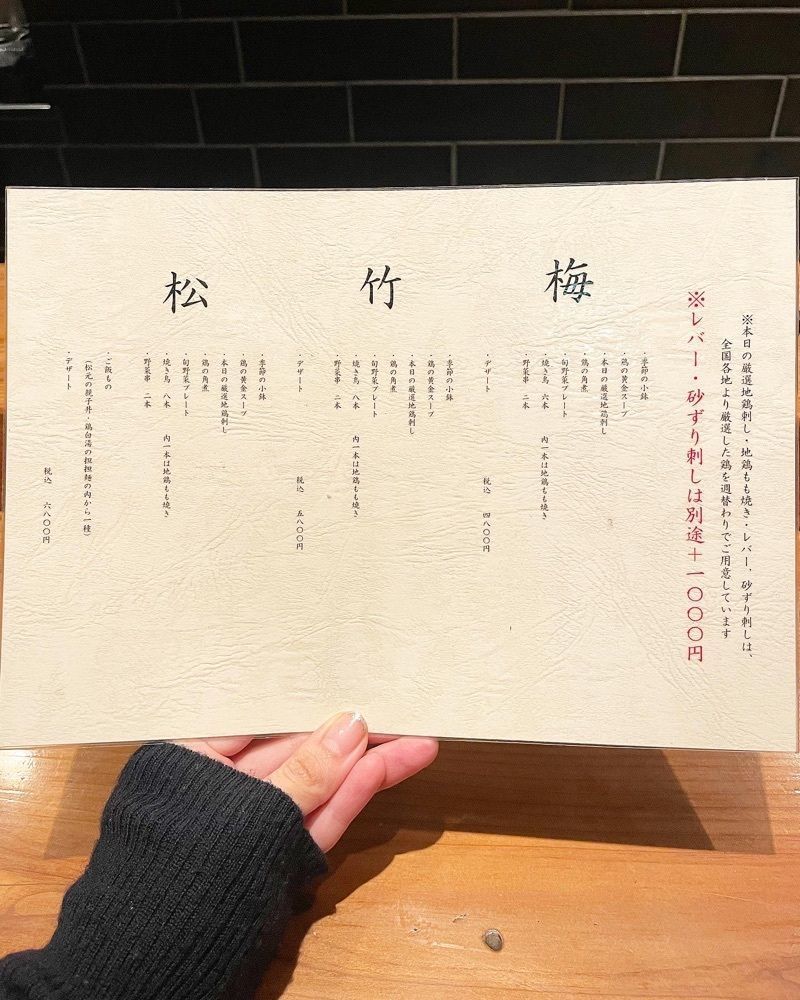 ※本日の厳選地鶏刺し・地鶏もも焼き・レバー、砂ずり刺しは、
全国各地より厳選した鶏を週替わりでご用意しています
※レバー・砂ずり刺しは別途＋一〇〇〇円
梅
・季節の小鉢
・鶏の黄金スープ
・本日の厳選地鶏刺し
・鶏の角煮
・旬野菜プレート
・焼き鳥 六本 内一本は地鶏もも焼き
・野菜串 二本
・デザート
税込 四八〇〇円
竹
・季節の小鉢
・鶏の黄金スープ
・本日の厳選地鶏刺し
・鶏の角煮
・旬野菜プレート
・焼き鳥 八本 内一本は地鶏もも焼き
・野菜串 二本
・デザート
税込 五八〇〇円
松
・季節の小鉢
・鶏の黄金スープ
・本日の厳選地鶏刺し
・鶏の角煮
・旬野菜プレート
・焼き鳥 八本 内一本は地鶏もも焼き
・野菜串 二本
・ご飯もの
（松元の親子丼・鶏白湯の担担麺の内から一種）
・デザート
税込 六八〇〇円